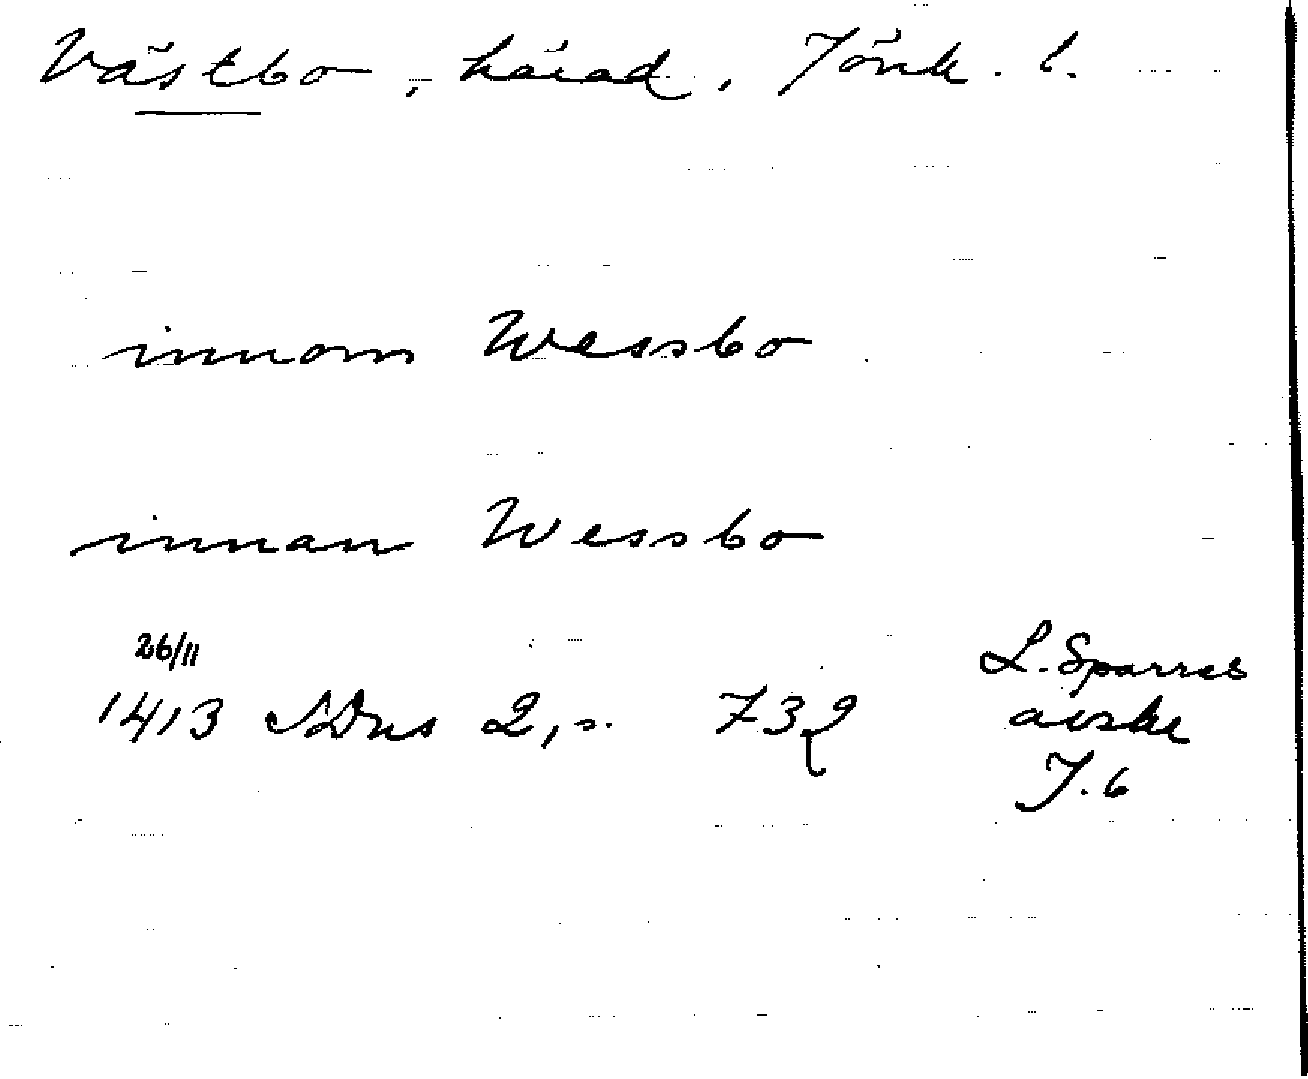 Västbo, härad, Jönk. l.
innom Wessbo
innan Wessbo
26/11
1413 SDns 2, s. 732
L. Sparres
avskr
J. 6